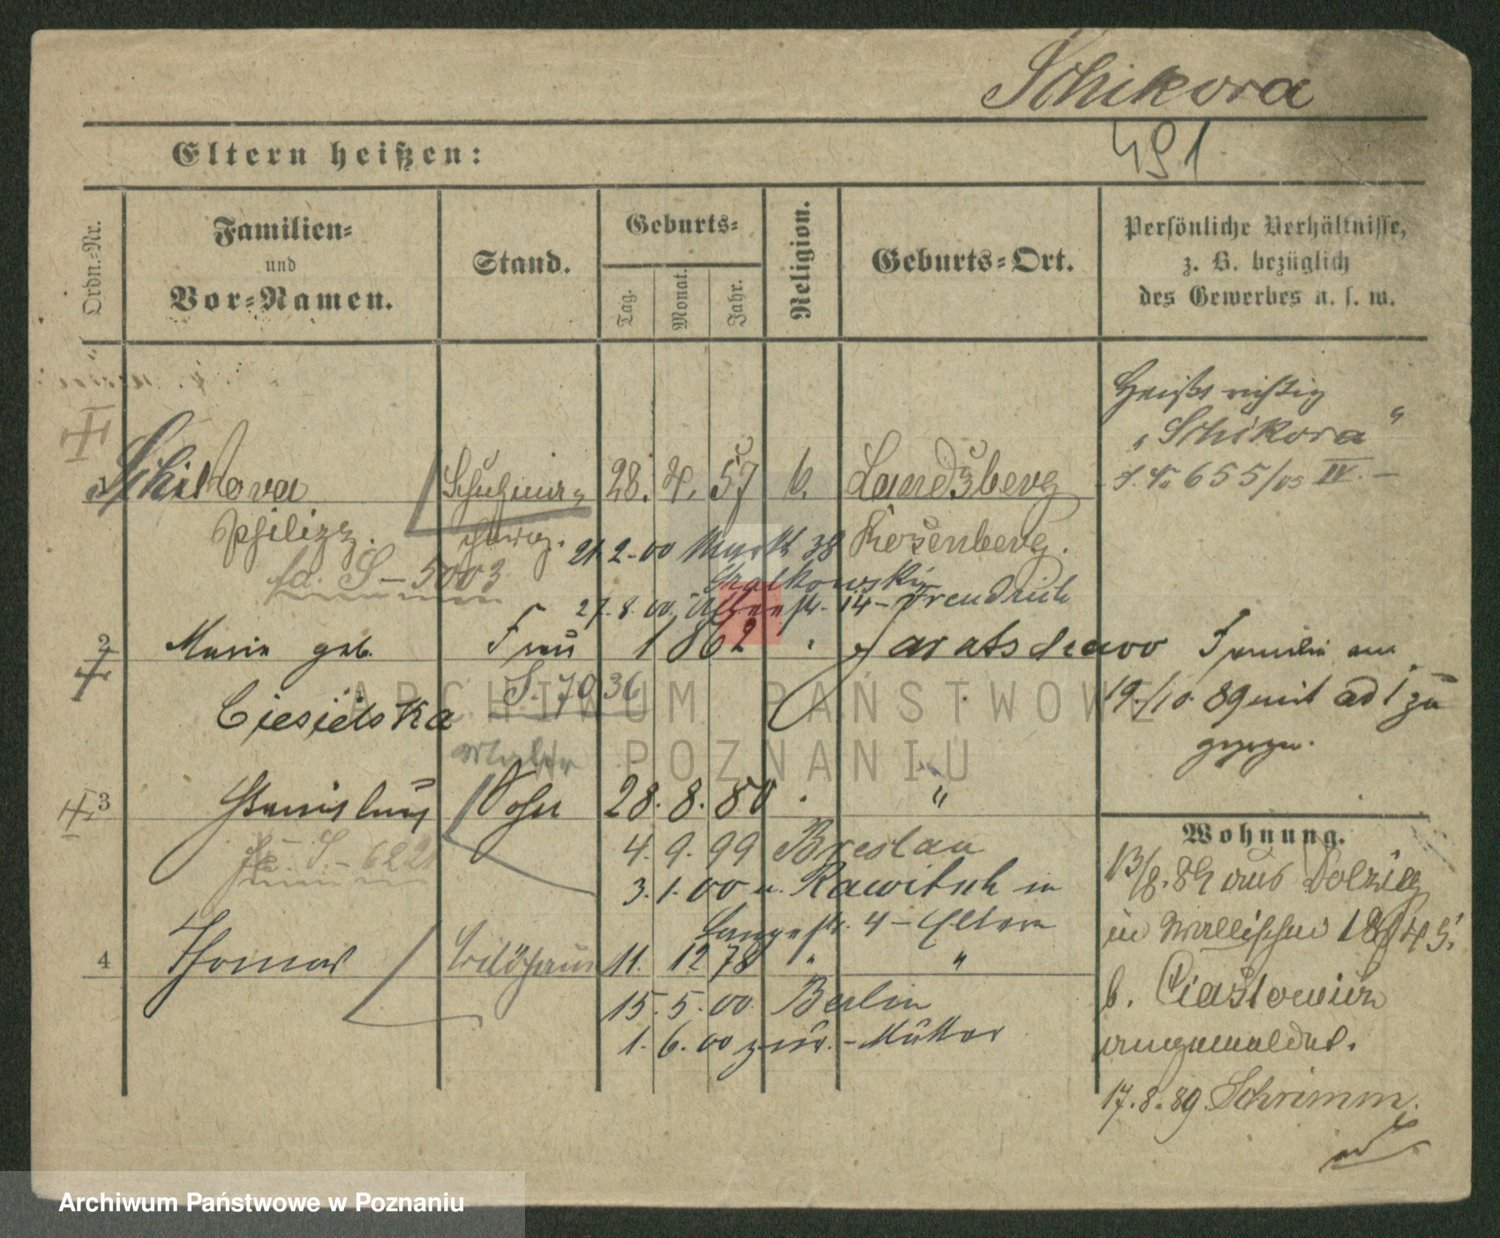 Schikora
491.
Eltern heißen:
Ordn.-Nr.
Familien-
und
Vor-Namen.
Stand.
Geburts-
Tag.
Monat.
Jahr.
Religion.
Geburts-Ort.
Persönliche Verhältnisse,
z. B. bezüglich
des Gewerbes u. s. w.
Heißt richtig
„Schikora“
655/05 IV. –
1 Schikora 28. 4. 57 k. Landsberg
Philipp. Rosenberg.
S – 5003 21. 2. 00 Markt 38
27. 8. 00. 14 –
2 Marie geb. Frau 1862 Jaratschewo Familie am
S. 7036 19./10. 89 mit ad 1 zu
Ciesielska gezogen.
3 Stanislaus Sohn 28. 8. 80 "
S. – 622
4. 9. 99 Breslau
3. 1. 00 v. Rawitsch in
Langestr. 4 – Eltern
4 Thomas Bildhauer 11. 12 78 " "
15. 5. 00. Berlin
1. 6. 00 zur. – Mutter
Wohnung.
13/8. 89 aus Dolzig
in Wallischei
b.
angemeldet.
17. 8. 89. Schrimm.
ARCHIWUM PAŃSTWOWE
W POZNANIU
Archiwum Państwowe w Poznaniu